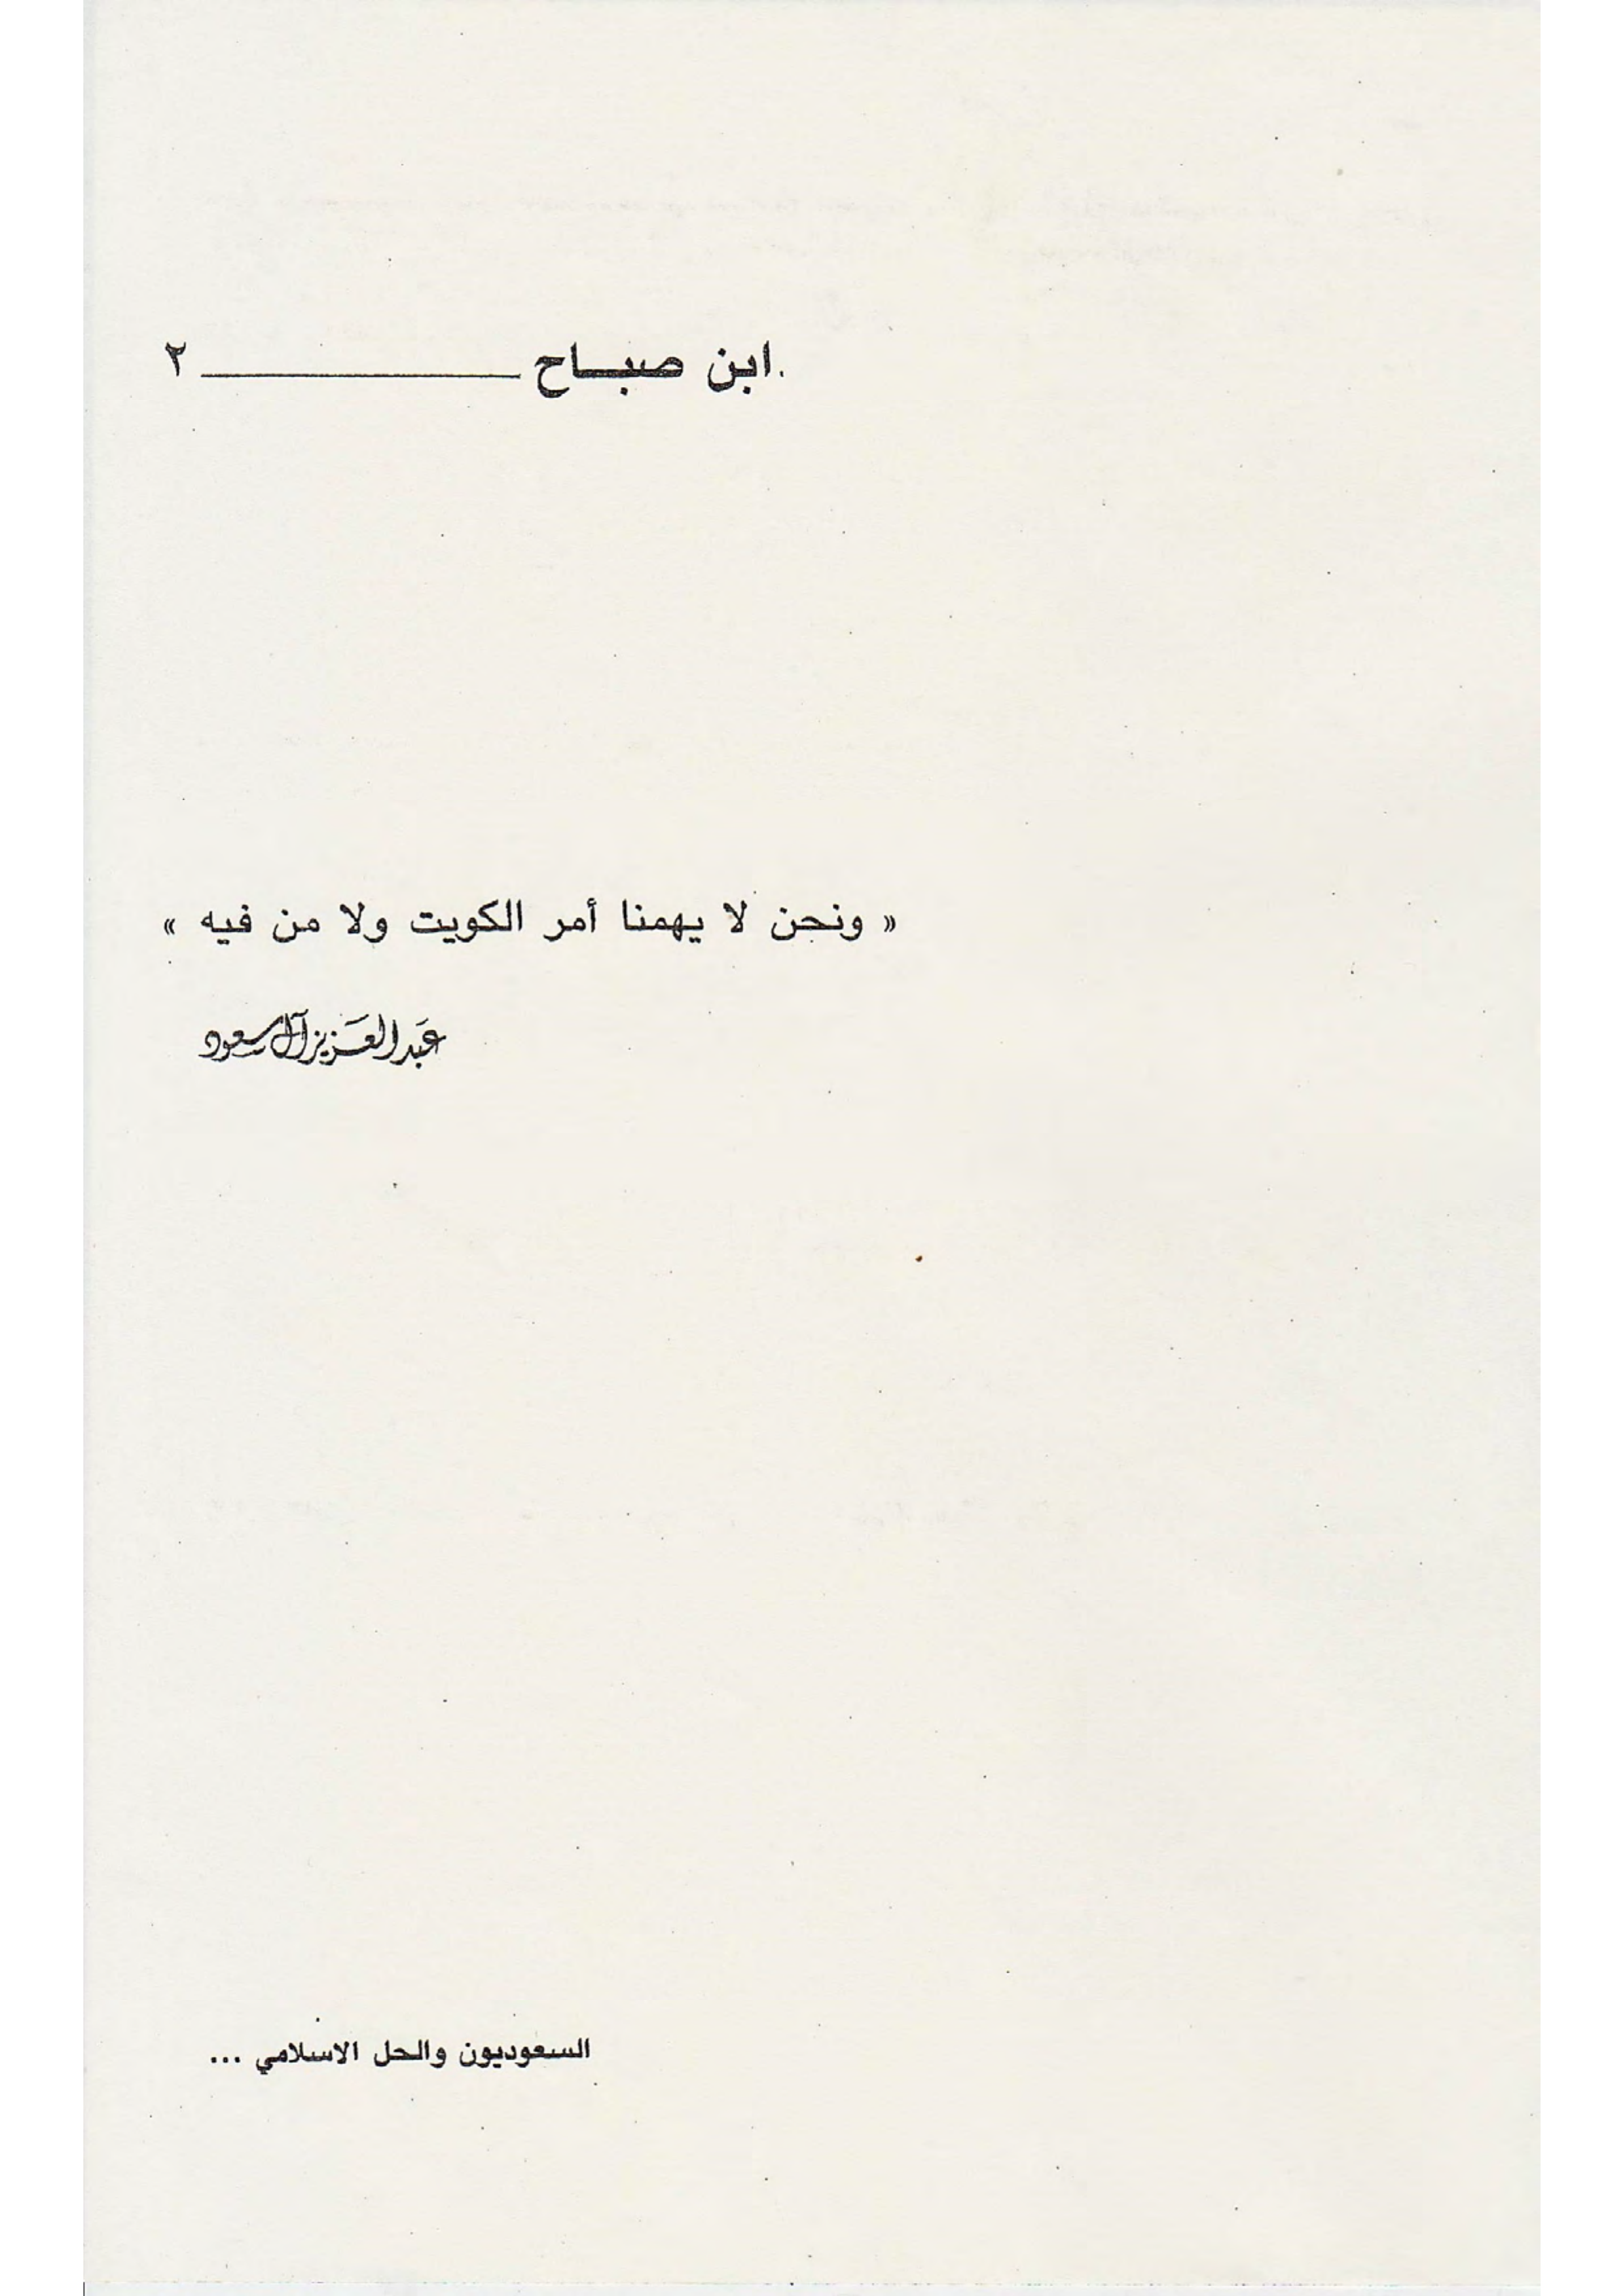 ابن صباح ٢
« ونحن لا يهمنا أمر الكويت ولا من فيه »
عبد العزيز آل سعود
السعوديون والحل الاسلامي ...